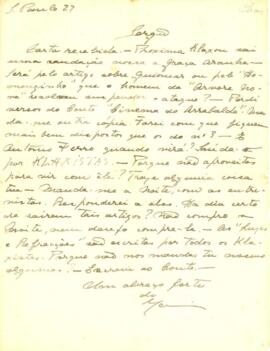 S. Paulo 27
Sergio
Carta recebida. — Proxima Klaxon sai
uma saudação nossa a Graça Aranha —
Será pelo artigo sobre Guiomar ou pelo "Ho-
menzinho que o homem da "Arvore
" ataque? — Perdi
versos do Couto "Cinema de Arrabalde". Man-
da-me outra cópia. Farei com que fiquem
mais bem dispostos que os do nº 3 — E
Antonio Ferro quando virá? Saúda-o
por KLAXISTAS. — Porque não aproveitas
para vir com ele? Traze alguma coisa
tua — Manda-me a Noite, com as entre-
vistas. Responderei a elas. Ha dia certo
de sairem tais artigos? Não compro a
Noite, nem desejo compra-la — As "Luzes
e Refracções" são escritas por todos os Kla-
xistas. Porque não nos mandas tu mesmo
algumas? — Escrevi ao Couto. —
Um abraço forte
do